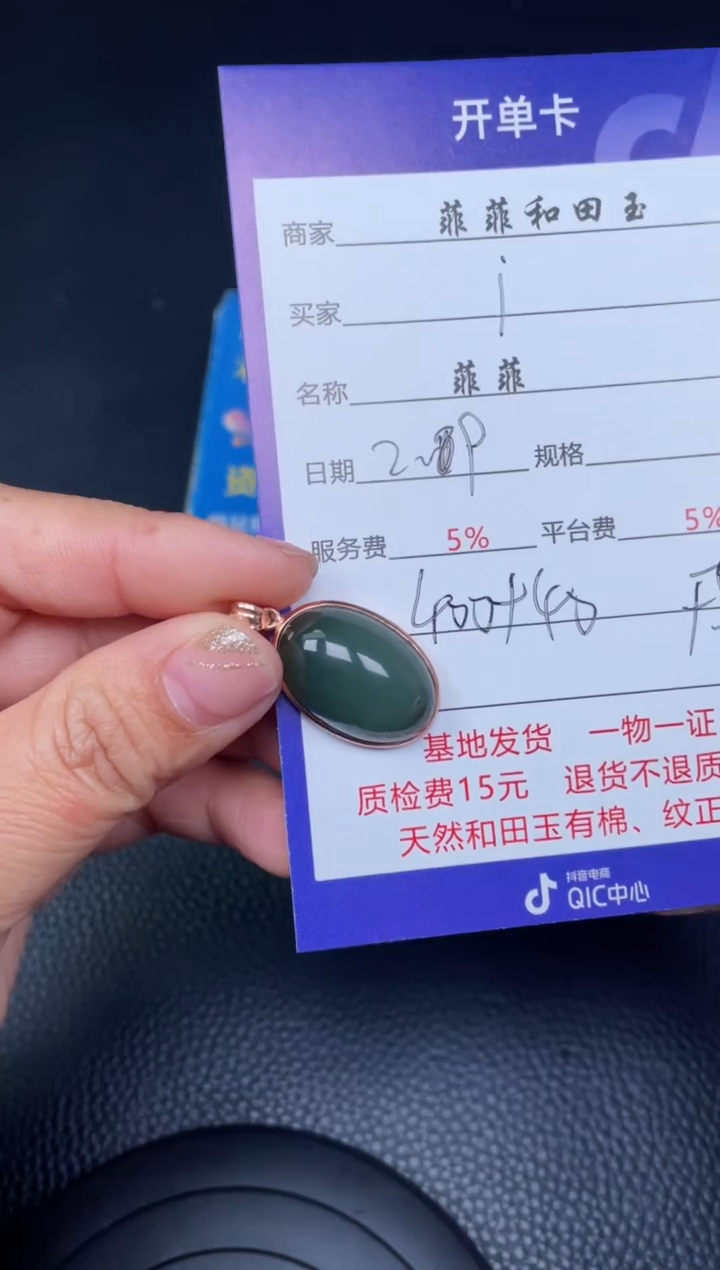 开单卡
商家 菲菲和田玉
买家
名称 菲菲
日期 规格
服务费 5% 平台费 5%
400+40
基地发货 一物一证
质检费15元 退货不退质
天然和田玉有棉、纹正
抖音电商
QIC中心